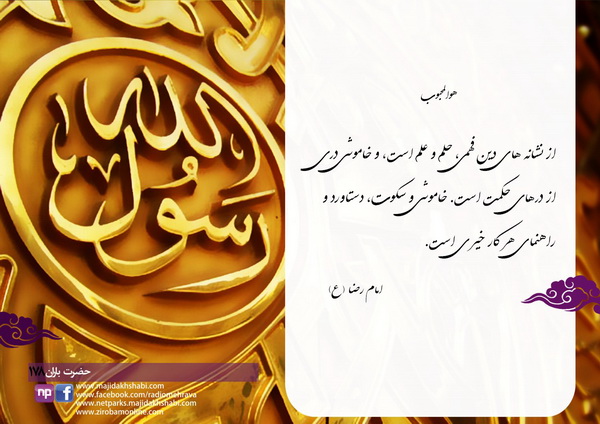 هوالمحبوب
از نشانه های دین فهمی، حلم و علم است، و خاموشی دری
از درهای حکمت است. خاموشی و سکوت، دستاورد و
راهنمای هر کار خیری است.
امام رضا (ع)
الله
رسول
حضرت باران ۱۷۸
np f
www.majidakhshabi.com
www.facebook.com/radiomehrava
www.netparks.majidakhshabi.com
www.zirobamonline.com